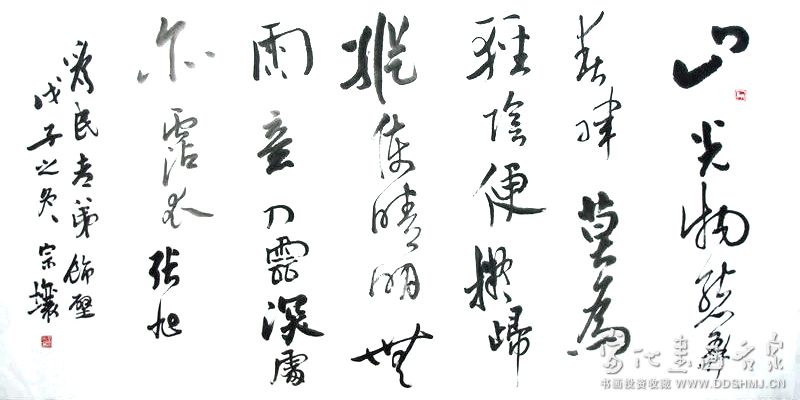 山光物態弄
春暉莫為
輕陰便擬歸
縱使晴明無
雨意入雲深處
亦霑衣 張旭
為民弟飾壁
戊子之冬 宗
当代書画名家
书画投资收藏 WWW.DDSHMJ.CN